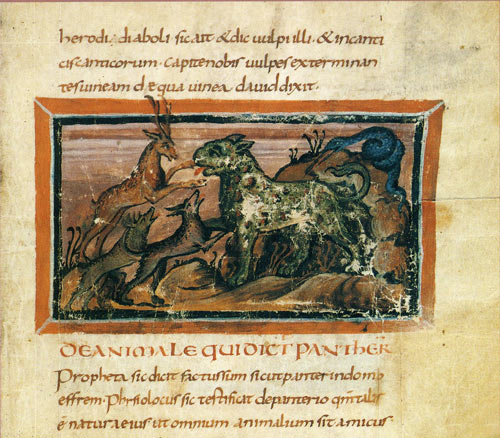 herodi; diaboli sicait &dic uulpi illi · &incanti
ciscanticorum · capitenobis uulpes exterminan
tesuineam dæqua uinea dauid dixit ·
DEANIMALEQUIDICT PANTHER
Propheta sicdicit factussum sicutpanter indomo
effrem · Phisiolocus sic testificat depanterio qm̄talis
ē naturaeius ut omnium animalium sit amicus